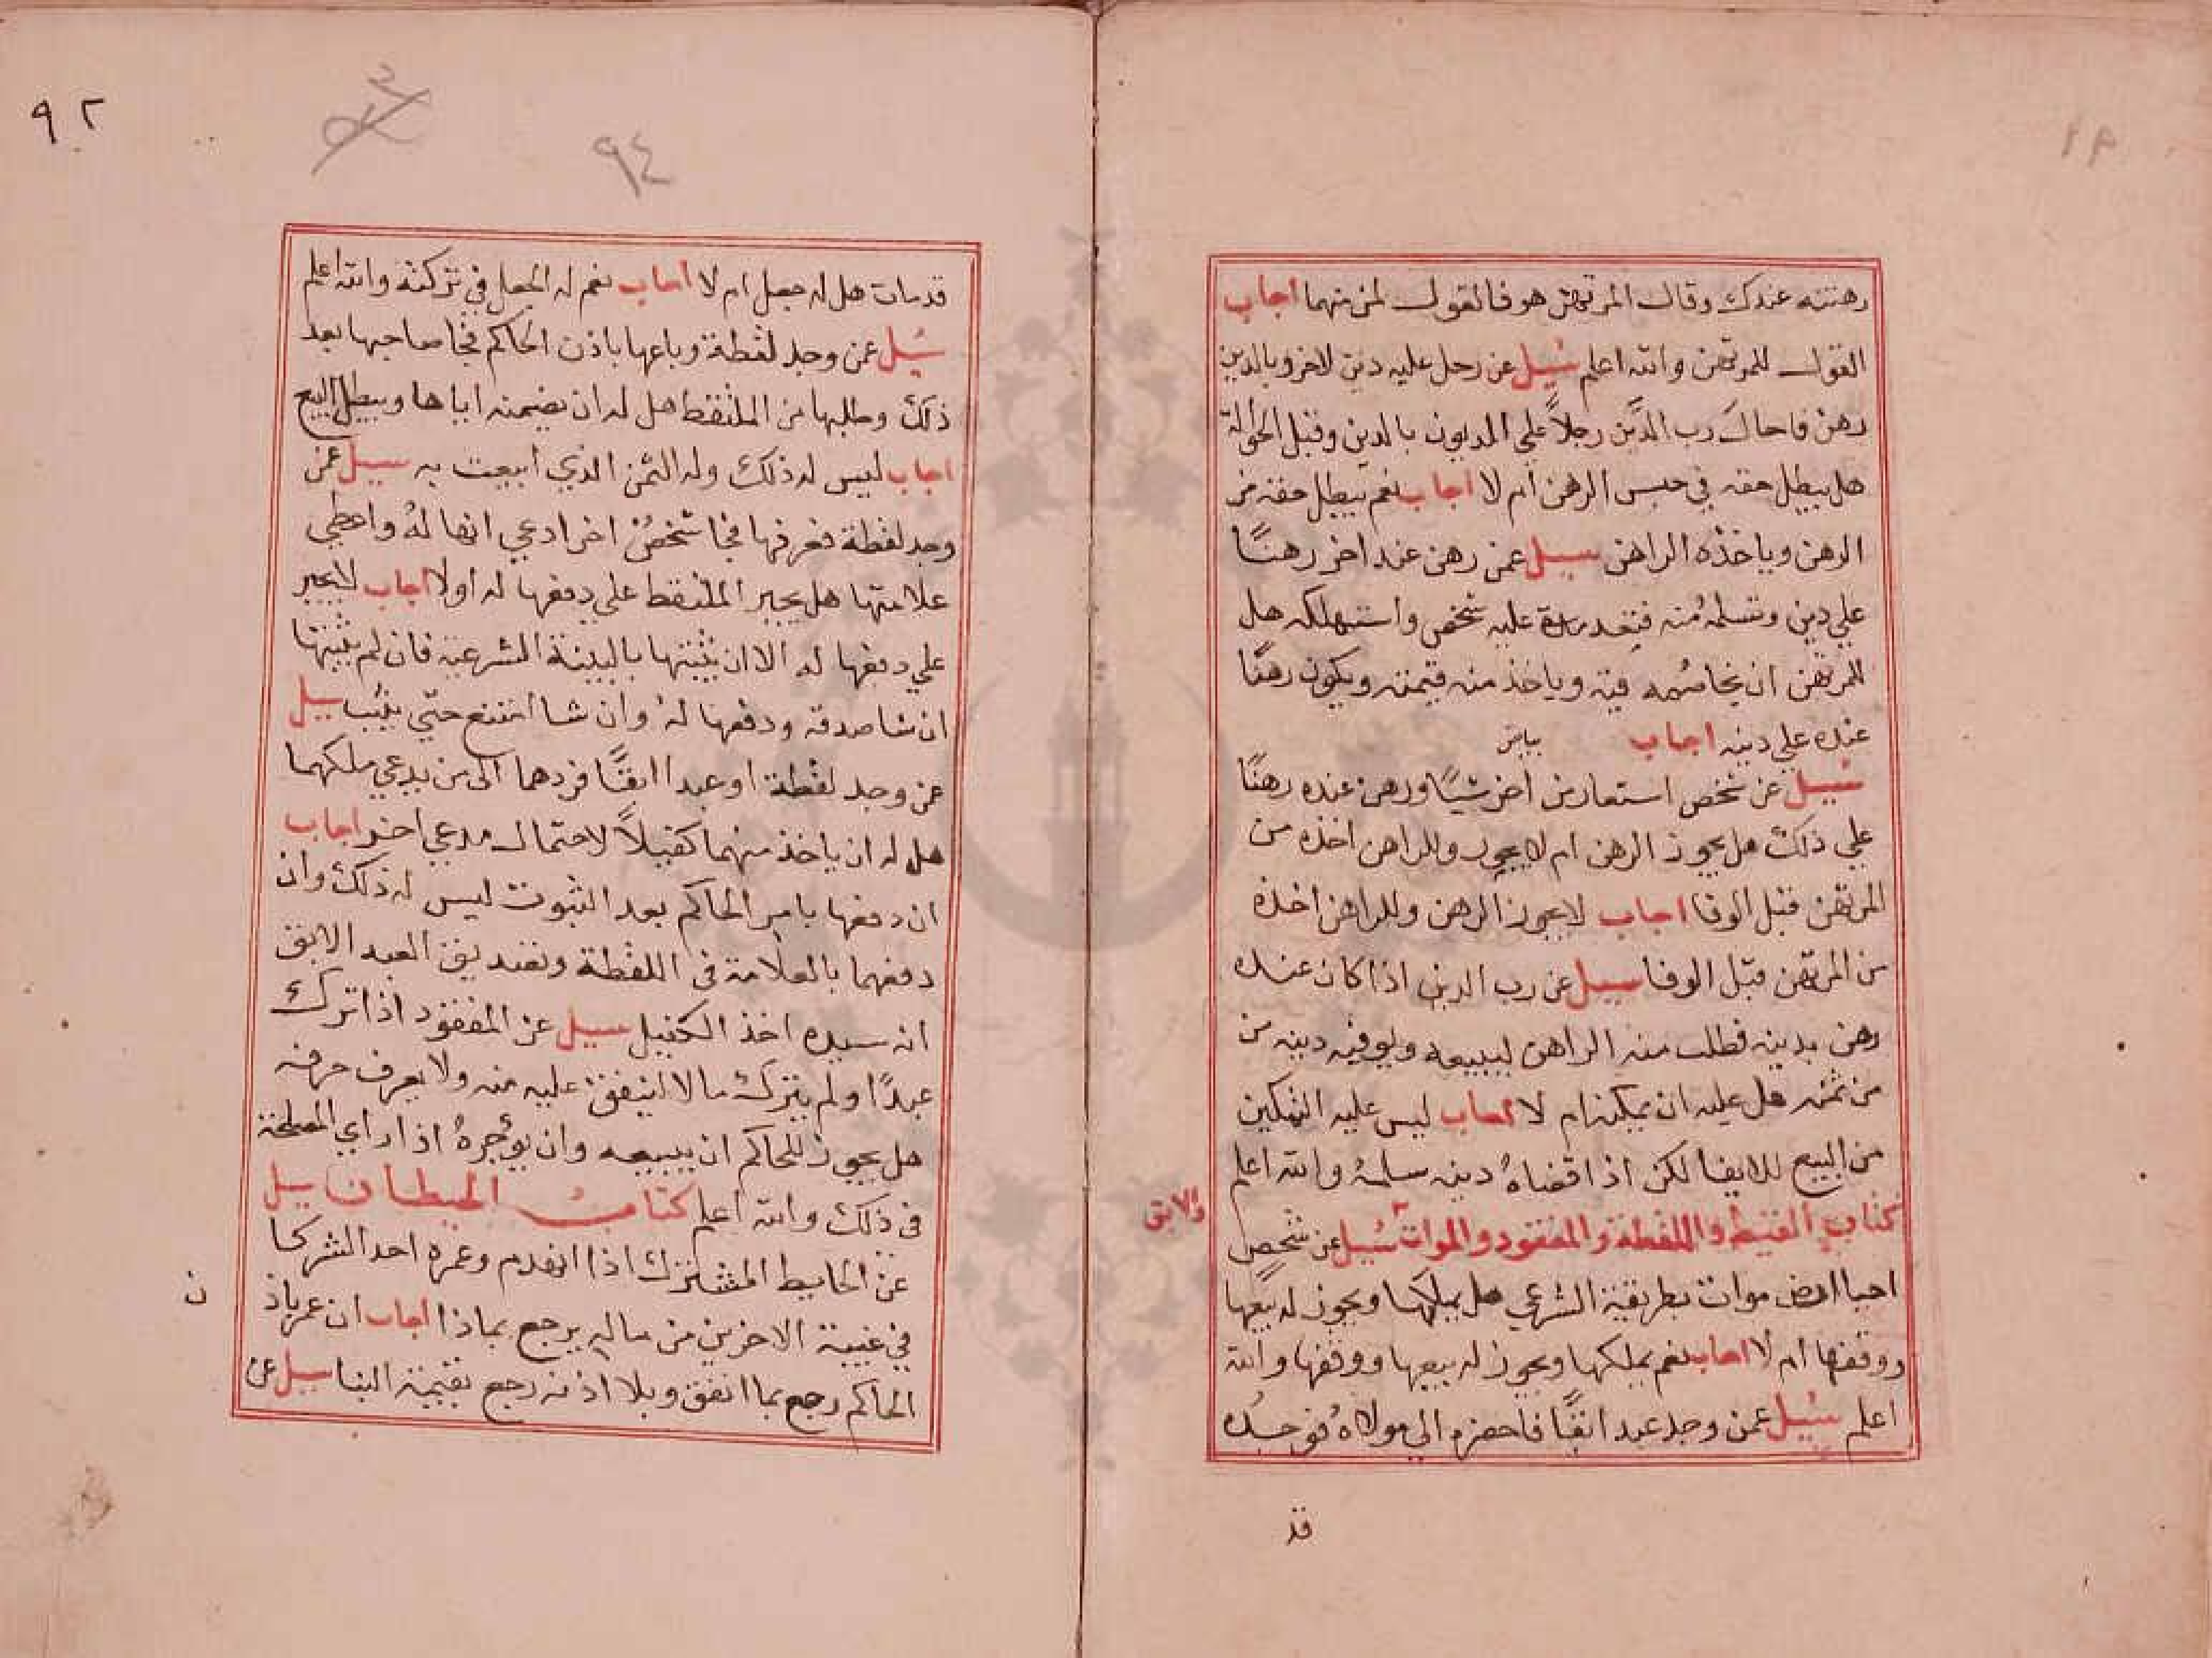 رهنته عندك وقال المرتهن هو فالقول لمن منهما اجاب
القول للمرتهن والله اعلم سُيل عن رجل عليه دين لاخر وبالدين
رهن فاحال رب الدَّين رجلاً علي المديون بالدين وقبل الحوالة
هل يبطل حقه في حبس الرهن ام لا اجاب نعم يبطل حقه من
الرهن وياخذه الراهن سيل عمن رهن عند اخر رهنًا
علي دين وتسلمه منه فتعدي عليه شخص واستهلكه هل
للمرتهن ان يخاصمه فيه وياخذ منه قيمته ويكون رهنًا
عنده علي دينه اجاب بياض
سيل عن شخص استعار من اخر شيًا ورهن عنده رهنًا
علي ذلك هل يجوز الرهن ام لا يجوز وللراهن اخذه من
المرتهن قبل الوفا اجاب لا يجوز الرهن وللراهن اخذه
من المرتهن قبل الوفا سيل عن رب الدين اذا كان عنده
رهن بدينه فطلب منه الراهن ليبيعه ويوفيه دينه من
من ثمنه هل عليه ان يمكنه ام لا اجاب ليس عليه التمكين
من البيع للايفا لكن اذا قضاهُ دينه سلمهُ والله اعلم
كتاب القيط واللقطة والمفقود والموات سُيل عن شخص
والابق
احيا ارض موات بطريقة الشرعي هل يملكها ويجوز له بيعها
ووقفها ام لا اجاب نعم يملكها ويجوز له بيعها ووقفها والله
اعلم سُيل عمن وجد عبد ابقًا فاحضره الي مولاهُ فوجده
قد
٩٢
٩٤
قد مات هل له جعل ام لا اجاب نعم له الجعل في تركته والله اعلم
سُيل عمن وجد لقطة وباعها باذن الحاكم فجا صاحبها بعد
ذلك وطلبها من الملتقط هل له ان يضمنه اياها ويبطل البيع
اجاب ليس له ذلك وله الثمن الذي ابيعت به سيل عمن
وجد لقطة فعرفها فجا شخصٌ اخر ادعي انها لهُ واعطي
علامتها هل يجبر الملتقط علي دفعها له اولا اجاب لا يجبر
علي دفعها له الا ان يثبتها بالبينة الشرعية فان لم يثبتها
ان شا صدقه ودفعها لهُ وان شا امتنع حتي يثبت سيل
عمن وجد لقطة او عبدا ابقًا فردهما الي من يدعي ملكهما
هل له ان ياخذ منهما كفيلاً لاحتمال مدعي اخر اجاب
ان دفعها بامر الحاكم بعد الثبوت ليس له ذلك وان
دفعهما بالعلامة في اللقطة وتصديق العبد الابق
انه سيده اخذ الكفيل سيل عن المفقود اذا ترك
عبدًا ولم يترك مالا لينفق عليه منه ولا يعرف حرفه
هل يجوز للحاكم ان يبيعه وان يوجرهُ اذا راي المصلحة
في ذلك والله اعلم كتاب الحيطان سيل
عن الحايط المشترك اذا انهدم وعمره احد الشركا
في غيبة الاخرين من ماله يرجع بماذا اجاب ان عمر باذ
ن
الحاكم رجع بما انفق وبلا اذنه رجع بقيمة البنا سيل عن